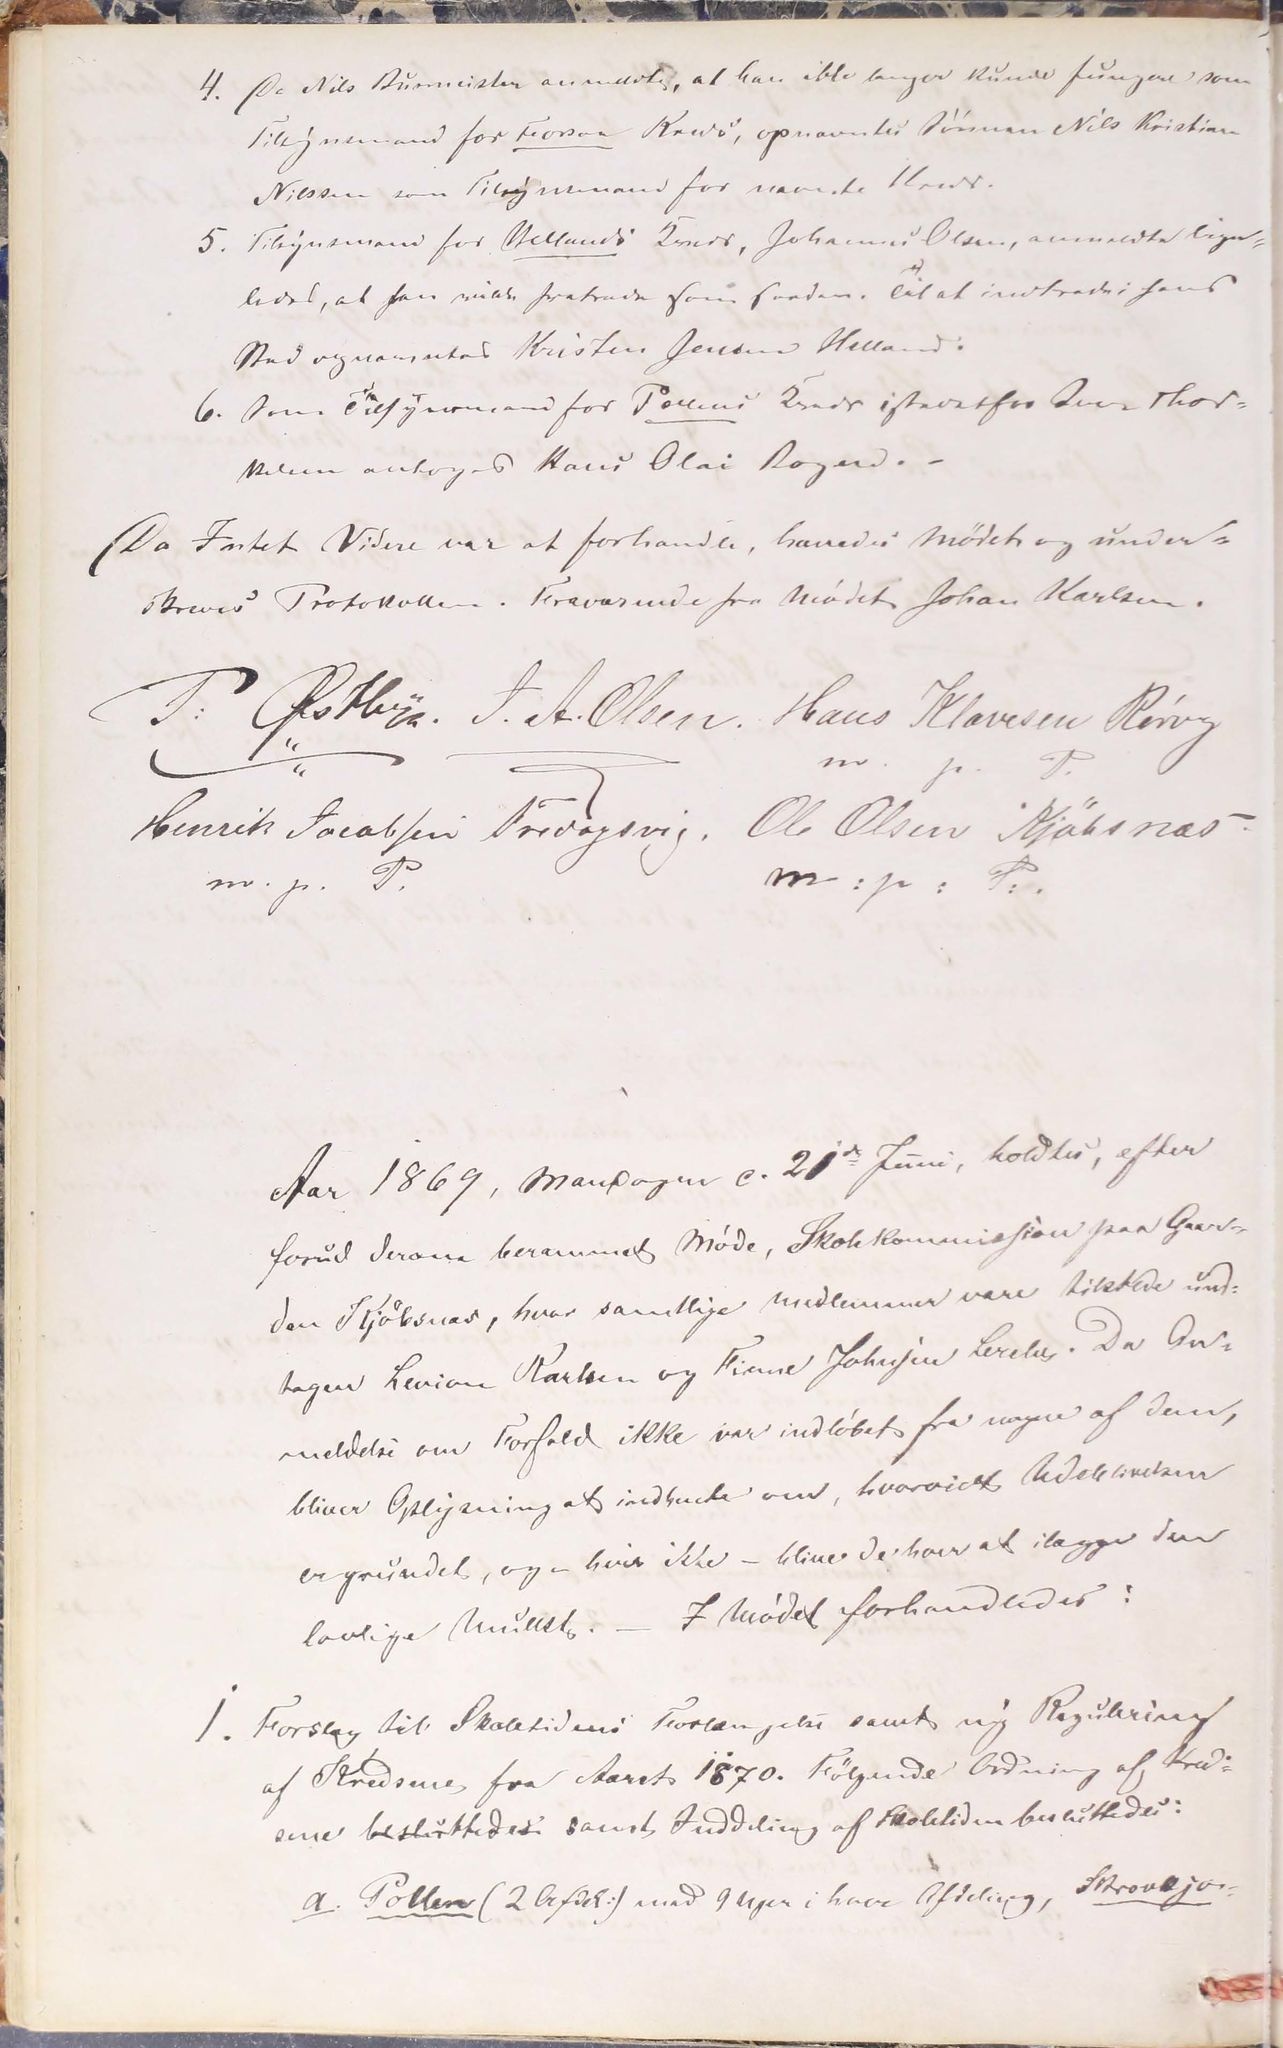 4. Da Nils Busmeister anmeldte, at han ikke længer kunde fungere som
Tilsynsmand for Forsaa Kreds, opnævntes Sönnen Nils Kristian
Nilssen som Tilsynsmand for nævnte Kreds.
5. Tilsynsmand for Hellands Kreds, Johannes Olsen, anmeldte ligeledes=
ledes, at han vilde fratræde som saadan. Til at indtræde i hans
Sted opnævntes Kristen Jensen Helland.
6. Som Tilsynsmand for Pollens Kreds istedetfor Thor=
kelsen antoges Hans Olai Rogerd. -
Da Intet Videre var at forhandle, hævedes Mödet og under=
skreves Protokollen. Fraværende fra Mödet Johan Karlsen.
P: Østbye. J. A. Olsen. Hans Klavesen Rörvg
m. p. P.
Henrik Jacobsen Tredagsvig. Ole Olsen Kjöbsnæs
m. p. P. m : p : P:.
Aar 1869, Mandagen d. 21de Juni, holdtes, efter
forud derom berammet Möde, Skolekommission paa Gaar=
den Kjöbsnæs, hvor samtlige Medlemmer vare tilstede und=
tagen Karlsen og Finne Johnsen. Da An=
meldelse om Forfald ikke var indlöbet fra nogen af dem,
bliver Oplysning at indhente om, hvorvidt Udeblivelsen
er grundet, og - hvis ikke - blive de hver at ilægge den
lovlige Mulkt. - I Mödet forhandledes:
1. Forslag til Skoletidens Forlængelse samt ny Regulering
af Kredsene fra Aaret 1870. Fölgende Ordning af Kred=
sene besluttedes samt Inddeling af Skoletiden besluttedes:
a. Pollen (2 Afdel:) med 9 Uger i hver Afdeling, Skrovkjo=